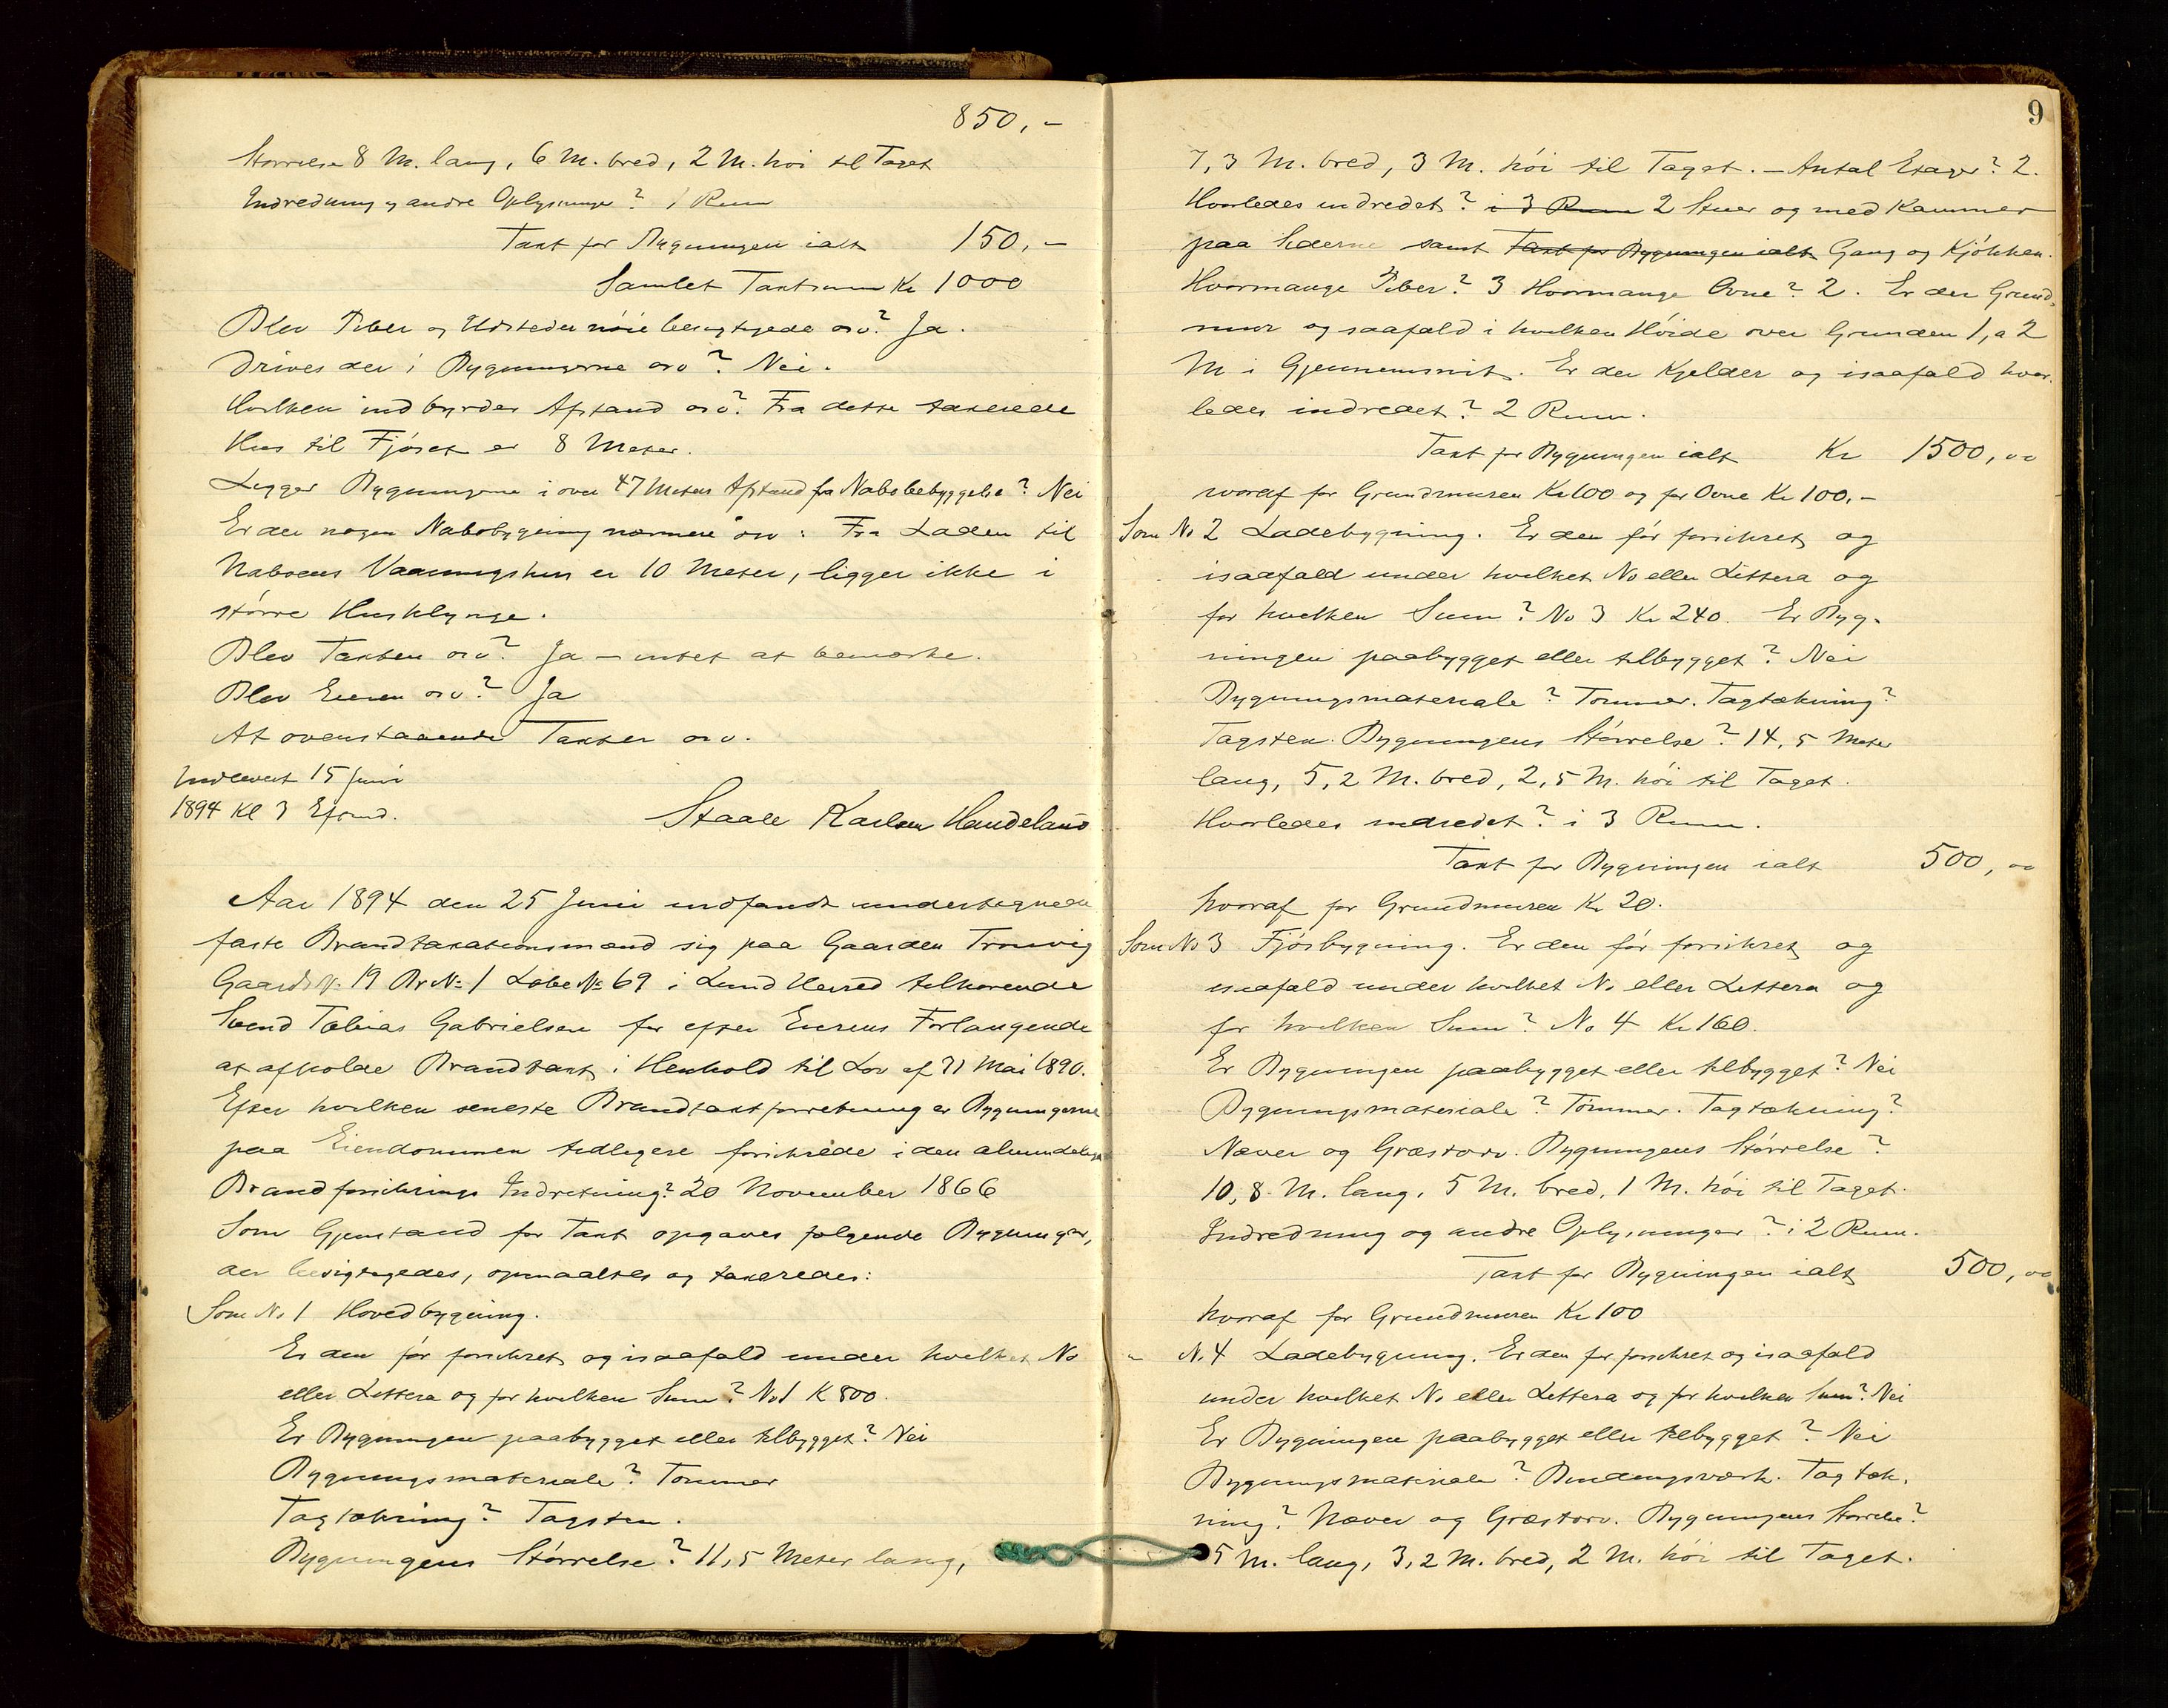 850,-
Størrelse 8 M. lang, 6 M. bred, 2 M. høi til Taget
Indredning og andre Oplysninger? 1 Rum
Taxt for Bygningen ialt 150,-
Samlet Taxtsum Kr 1000
Blev Piber og Ildsteder nøie besigtigede osv? Ja.
Drives der i Bygningerne osv? Nei.
Hvilken indbyrdes Afstand osv? Fra dette taxerede
Hus til Fjøset er 8 Meter.
Ligger Bygningerne i over 47 Meters Afstand fra Nabobebyggelse? Nei
Er der nogen Nabobygning nærmere osv: Fra Laden til
Naboens Vaaningshus er 10 Meter, ligger ikke i
større Husklynge.
Blev Taxten osv? Ja - intet at bemærke.
Blev Eieren osv? Ja
At ovenstaaende Taxter osv.
Indleveret 15 Juni
1894 Kl 3 Efmd.
Staale Karlsen Handeland
Aar 1894 den 25 Juni indfandt undertegnede
faste Brandtaxationsmænd sig paa Gaarden Tronvig
Gaards No 19 Br No 1 Løbe No 69 i Lund Herred tilhørende
Svend Tobias Gabrielsen for efter Eierens Forlangende
at afholde Brandtaxt i Henhold til Lov af 31 Mai 1890.
Efter hvilken seneste Brandtaxtforretning er Bygningerne
paa Eiendommen tidligere forsikrede i den almindelige
Brandforsikrings Indretning? 20 November 1866
Som Gjenstand for Taxt opgaves følgende Bygninger,
der besigtigedes, opmaaltes og taxeredes:
Som No 1 Hovedbygning.
Er den før forsikret og isaafald under hvilket No
eller Littera og for hvilken Sum? No 1 K 800.
Er Bygningen paabygget eller tilbygget? Nei
Bygningsmateriale? Tømmer
Tagtækning? Tagsten.
Bygningens Størrelse? 11,5 Meter lang,
9
7,3 M. bred, 3 M. høi til Taget. - Antal Etager? 2.
Hvorledes indredet? i 3 Rum 2 Stuer og med Kammer
paa Siderne samt Taxt for Bygningen ialt Gang og Kjøkken.
Hvormange Piber? 3 Hvormange Ovne? 2. Er der Grund-
mur og isaafald i hvilken Høide over Grunden 1, a 2
M i Gjennemsnit. Er der Kjelder og isaafald hvor-
ledes indredet? 2 Rum.
Taxt for Bygningen ialt Kr 1500,00
hvoraf for Grundmuren Kr 100 og for Ovne Kr 100.-
Som No 2 Ladebygning. Er den før forsikret og
isaafald under hvilket No eller Littera og
for hvilken Sum? No 3 Kr 240. Er Byg-
ningen paabygget eller tilbygget? Nei
Bygningsmateriale? Tømmer. Tagtækning?
Tagsten. Bygningens Størrelse? 14,5 Meter
lang, 5,2 M. bred, 2,5 M. høi til Taget.
Hvorledes indredet? i 3 Rum.
Taxt for Bygningen ialt 500,00
hvoraf for Grundmuren Kr 20.
Som No 3 Fjøsbygning. Er den før forsikret og
isaafald under hvilket No eller Littera og
for hvilken Sum? No 4 Kr 160.
Er Bygningen paabygget eller tilbygget? Nei
Bygningsmateriale? Tømmer. Tagtækning?
Næver og Græstorv. Bygningens Størrelse?
10,8 M. lang, 5 M. bred, 1 M. høi til Taget.
Indredning og andre Oplysninger? i 2 Rum.
Taxt for Bygningen ialt 500,00
hvoraf for Grundmuren Kr 100
" No 4 Ladebygning. Er den før forsikret og isaafald
under hvilket No eller Littera og for hvilken Sum? Nei
Er Bygningen paabygget eller tilbygget? Nei
Bygningsmateriale? Bindingsværk. Tagtæk-
ning? Næver og Græstorv. Bygningens Størrelse?
5 M. lang, 3,2 M. bred, 2 M. høi til Taget.